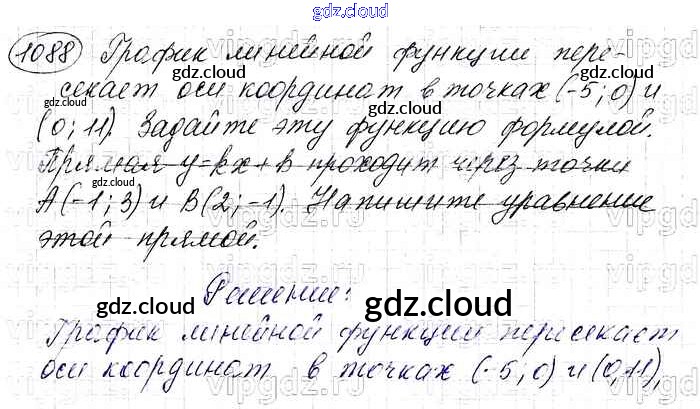 gdz.cloud
1088 График линейной функции пере-
секает оси координат в точках (-5; 0) и
(0; 11). Задайте эту функцию формулой.
Прямая y=kx+b проходит через точки
A(-1; 3) и B(2; -1). Напишите уравнение
этой прямой.
Решение:
График линейной функции пересекает
оси координат в точках (-5; 0) и (0, 11),